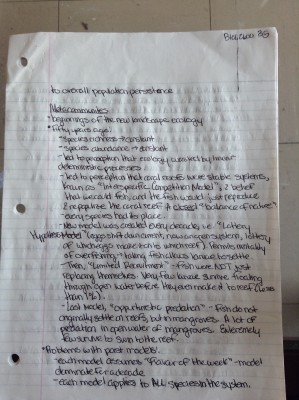 Biol 2060
to overall population persistence
Metacommunities
- beginnings of the new landscape ecology
- fifty years ago:
- species richness → constant
- species abundance → constant
- led to perception that ecology was led by
deterministic processes
- led to perception that coral reefs were static systems,
known as "Interspecific Competition Model", a belief
that we could fish and the fish would just reproduce
& repopulate the coral reef. A closed "balance of nature"
- every species had its place
- New model was created every decade, i.e. "Lottery
of which egg makes it on to which reef). Permits
of overfishing - taking fish allows
- Then, "Limited Recruitment" - fish were NOT just
replacing themselves. Very few larvae survive floating
through open water before they even make it to reef (less
than 1%).
- Last Model, "opportunistic predation" - Fish do not
originally settle on reefs, but in mangroves. A lot of
predation in open water or mangroves. Extremely
few survive to swim to the reef.
* Problems with past models:
- each model assumes "flavor of the week" - model
dominate for a decade
- each model applies to ALL species in the system.